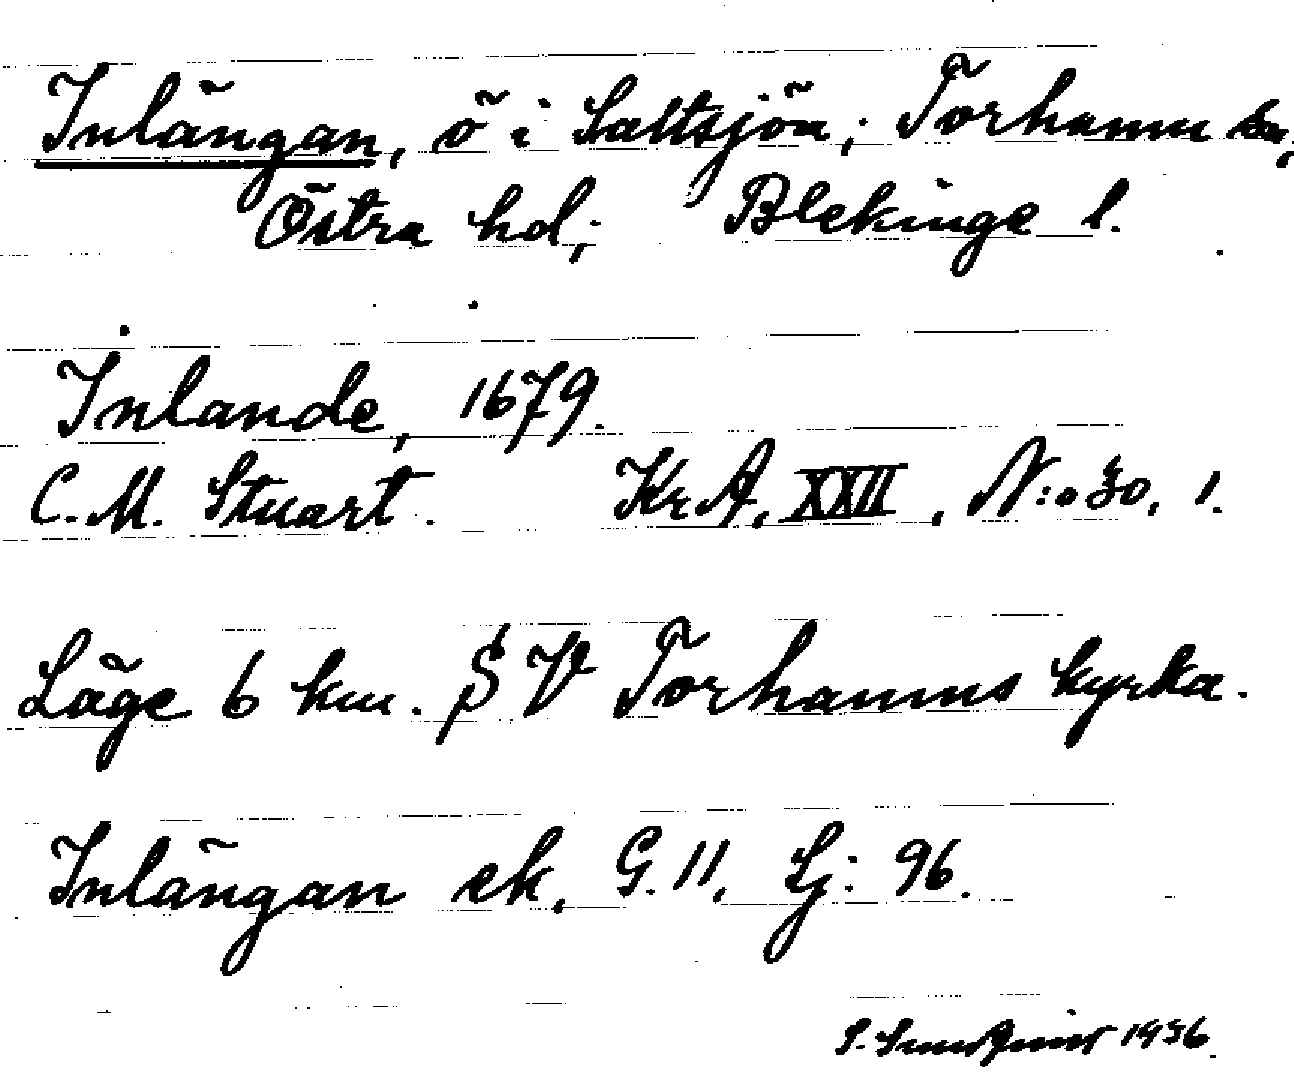 Inlängan, ö i Saltsjön; Torhamn sn,
Östra hd; Blekinge l.
Inlande, 1679.
C.M. Stuart. KrA, XXII, N:o 30, 1.
Läge 6 km. SV Torhamns kyrka.
Inlängan ek. G. 11, Lj: 96.
1936.